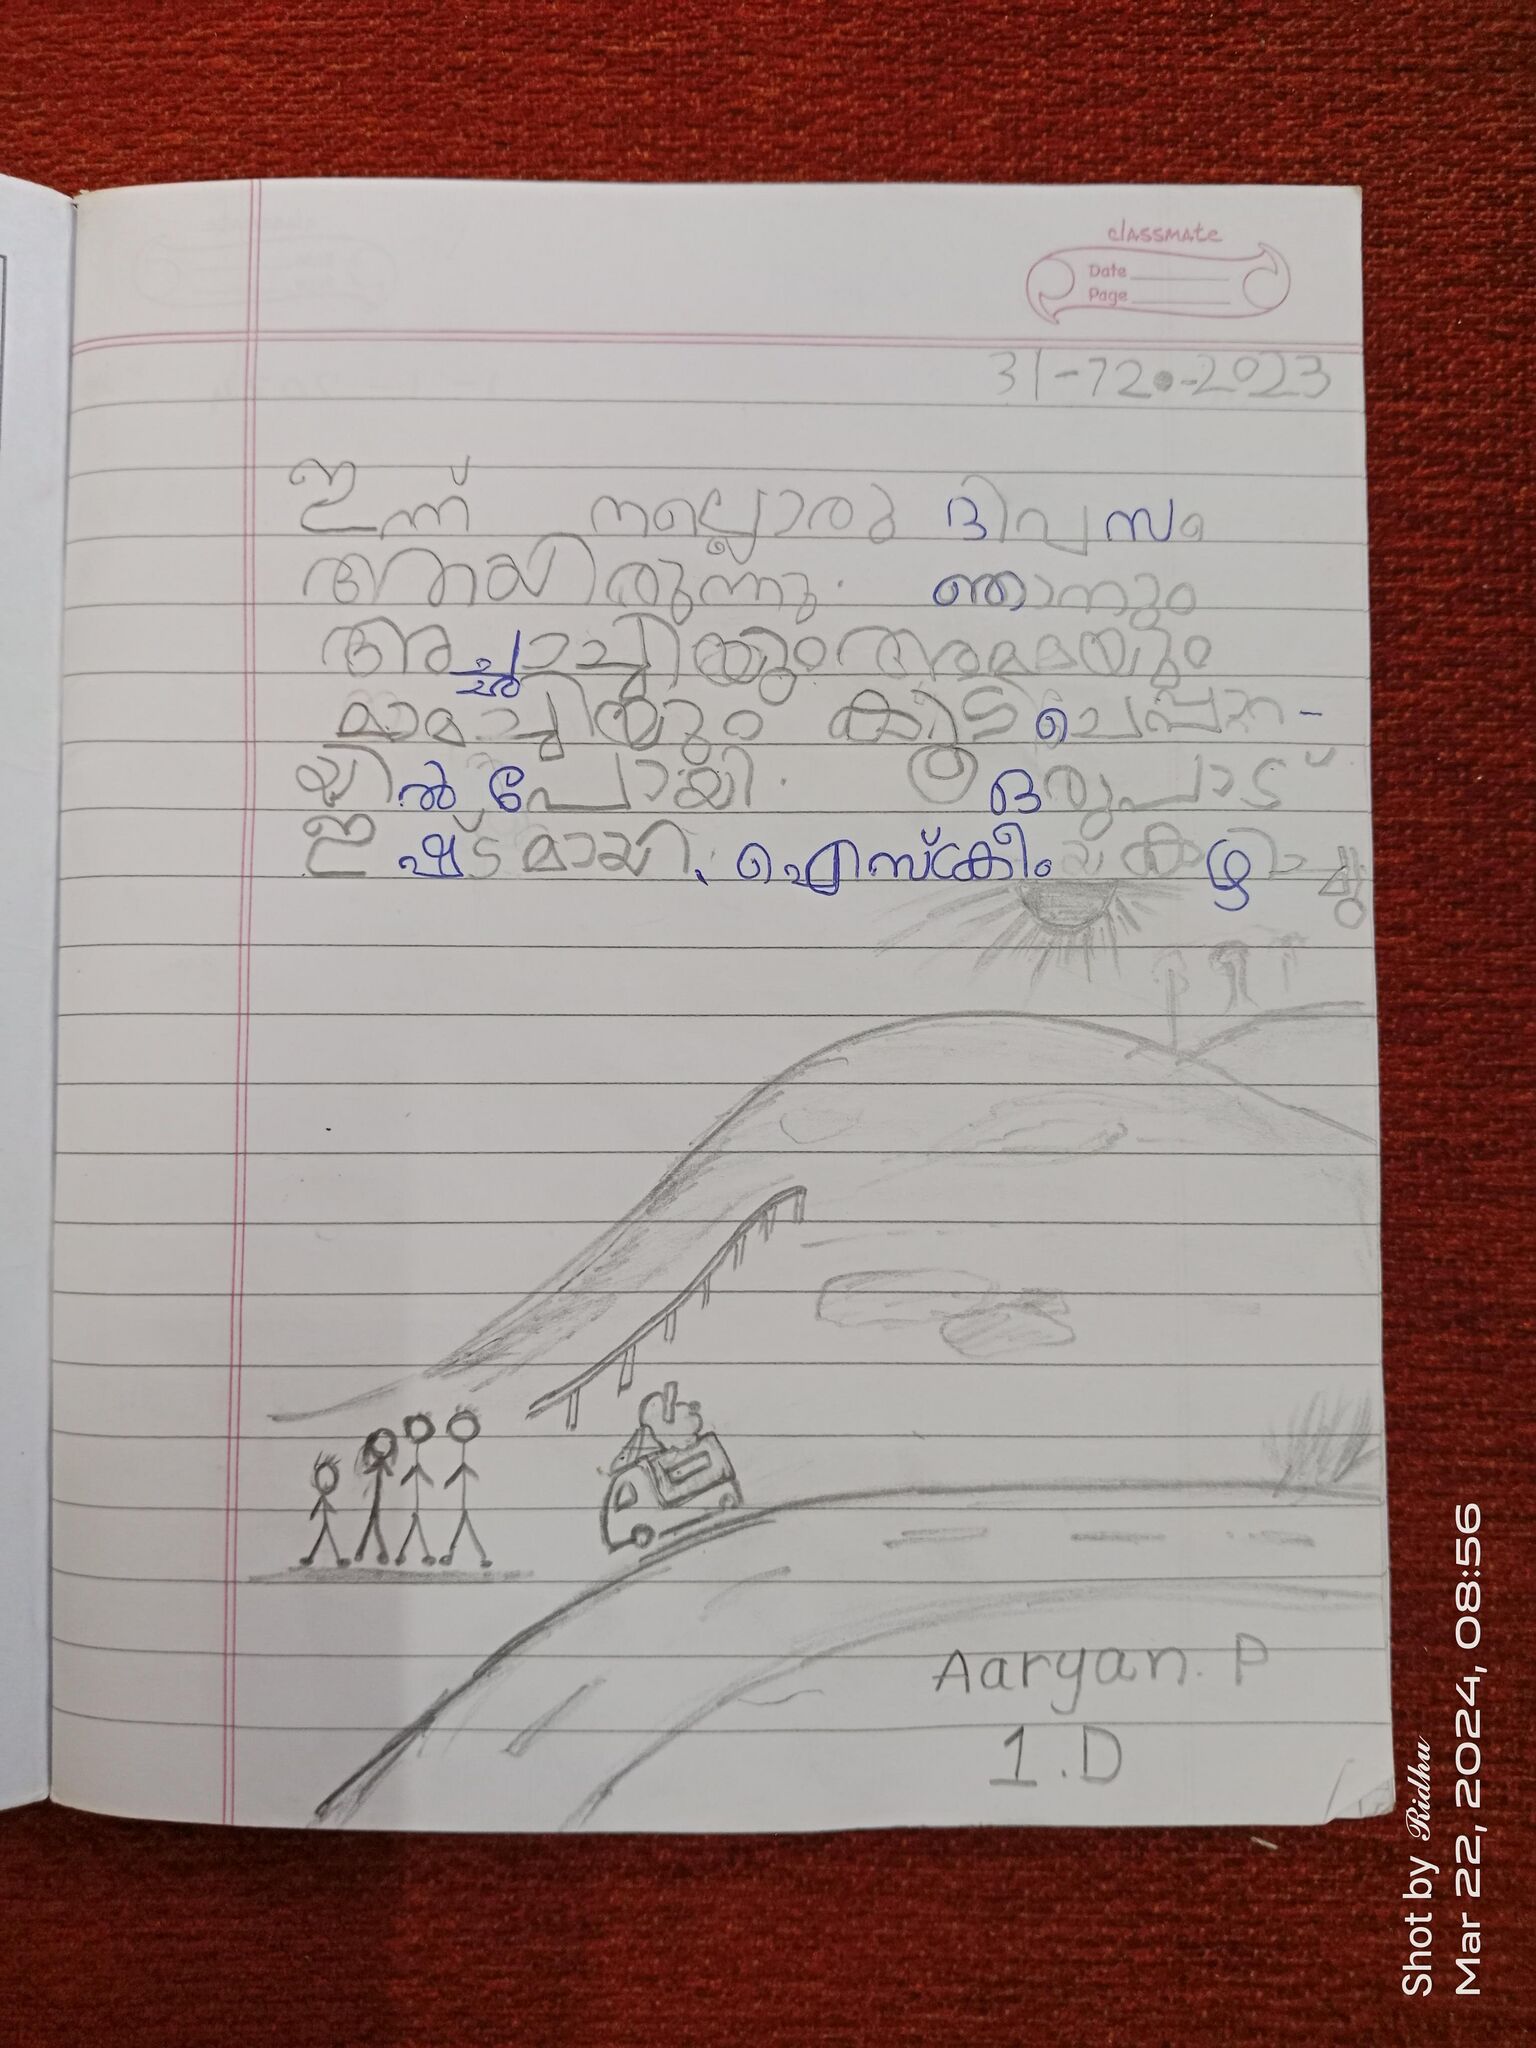 classmate
Date
Page
31-12-2023
ഇന്ന് നല്ലൊരു ദിവസം
ആയിരുന്നു. ഞാനും
യും അമ്മയും
മാമച്ചിയും കൂടി
യിൽ പോയി. ഒരുപാട്
ഇഷ്ടമായി. ഐസ്ക്രീം കഴിച്ചു
Aaryan. P
1.D
Shot by Ridhu
Mar 22, 2024, 08:56